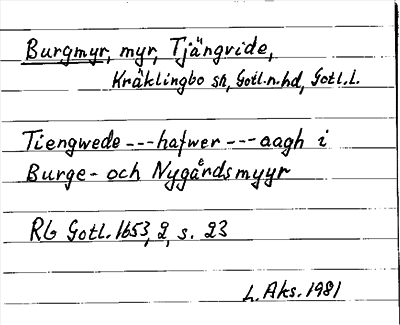 Burgmyr, myr, Tjängvide,
Kräklingbo sn, Gotl.n.hd, Gotl.l.
Tiengwede --- hafwer --- aagh i
Burge- och Nygårdsmyyr
Rb Gotl. 1653, 2, s. 23
L. Aks. 1981